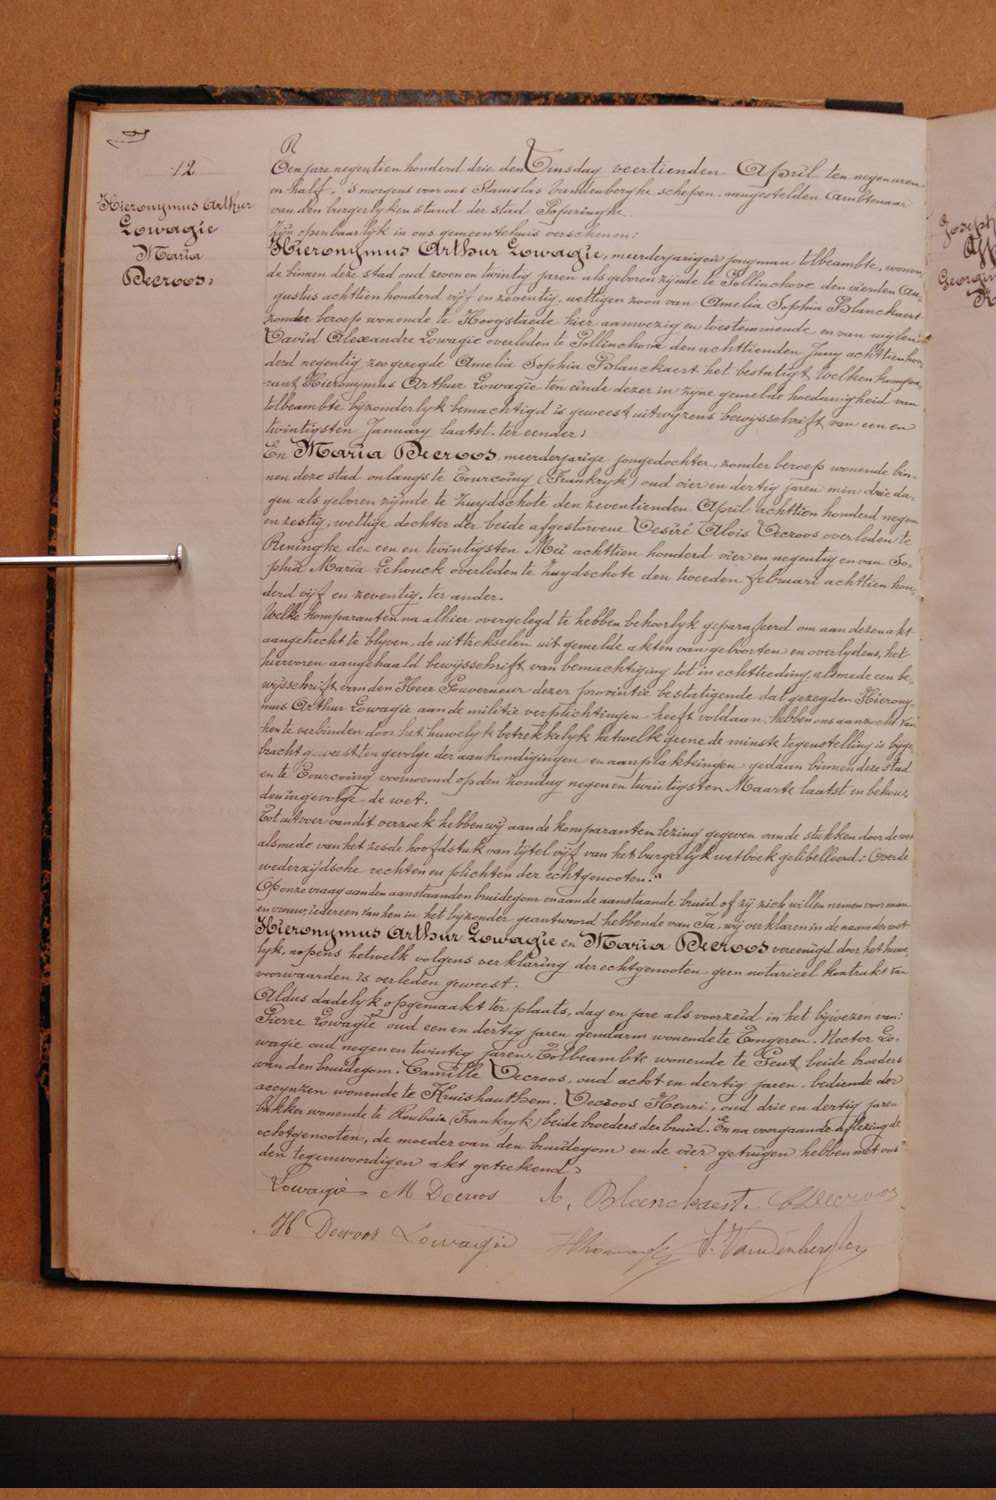 12
Hieronymus Arthur
Lowagie
Maria
Decroos,
Ten jare negentien honderd drie den Dinsdag veertienden April ten negen uren
en half s'morgens voor ons Stanislas Vandenberghe schepen, aangestelden Ambtenaar
van den burgerlyken stand der stad Poperinghe.
Zijn openbaarlyk in ons gemeentehuis verschenen:
Hieronymus Arthur Lowagie, meerderjarigen jongman tolbeambte, wonen,
de binnen deze stad oud zeven en twintig jaren als geboren zijnde te Pollinchove den vierden Au,
gustus achttien honderd vijf en zeventig, wettigen zoon van Amelia Sophia Blanckaert
zonder beroep wonende te Hoogstaede hier aanwezig en toestemmende en van wijlen
David Alexandre Lowagie overleden te Pollinchove den achttienden Juny achttien hon,
derd negentig zoo gezegde Amelia Sophia Blanckaert het bestatigt. Welken kompa,
rant Hieronymus Arthur Lowagie ten einde dezer in zijne gemelde hoedanigheid van
tolbeambte byzonderlyk bemachtigd is geweest uitwijzens bewysschrift van een en
twintigsten January laatst. ter eender,
En Maria Decroos, meerderjarige jongedochter, zonder beroep wonende bin,
nen deze stad onlangs te Tourcoing (Frankryk) oud vier en dertig jaren min drie da,
gen als geboren zijnde te Zuydschote den zeventienden April achttien honderd negen
en zestig, wettige dochter der beide afgestorvene Desiré Alois Decroos overleden te
Reninghe den een en twintigsten Mei achttien honderd vier en negentig en van So,
phia Maria Lehouck overleden te Zuydschote den tweeden februari achttien hon,
derd vijf en zeventig. ter ander.
Welke komparanten na alhier overgelegd te hebben behoorlyk geparafeerd om aan dezen akt
aangehecht te blyven, de uittrekselen uit gemelde akten van geboorten en overlydens, het
hiervoren aangehaald bewijsschrift van bemachtiging tot in echttreding, alsmede een be,
wijsschrift van den Heer Gouverneur dezer provintie bestatigende dat gezegden Hierony,
mus Arthur Lowagie aan de militie verplichtingen heeft voldaan, hebben ons aanzocht van
hen te verbinden door het huwelyk betrekkelyk hetwelk geene de minste tegenstelling is bijge,
bracht geweest ten gevolge der aankondigingen en aanplakkingen gedaan binnen deze stad
en te Tourcoing voornoemd op den zondag negen en twintigsten Maarte laatst en behou,
den ingevolge de wet.
Tot uitvoer van dit verzoek hebben wij aan de komparanten lezing gegeven van de stukken door de wet
alsmede van het zesde hoofdstuk van tijtel vijf van het burgerlyk wetboek gelibelleerd: "Over de
wederzijdsche rechten en plichten der echtgenooten."
Op onze vraag aan den aanstaanden bruidegom en aan de aanstaande bruid of zij zich willen nemen voor man
en vrouw, iedereen van hen in het byzonder geantwoord hebbende van Ja, wij verklaren in de naam der wet
Hieronymus Arthur Lowagie en Maria Decroos vereenigd door het huwe,
lyk, nopens hetwelk volgens verklaring der echtgenooten geen notarieel kontrakt van
voorwaarden is verleden geweest.
Aldus dadelyk opgemaakt ter plaats, dag en jare als voorzeid in het bijwezen van:
Pierre Lowagie oud een en dertig jaren gendarm wonende te Tongeren. Hector Lo,
wagie oud negen en twintig jaren. Tolbeambte wonende te Gent, beide broeders
van den bruidegom. Camille Decroos, oud acht en dertig jaren. bediende der
accynzen wonende te Kruishauthem. Decroos Henri, oud drie en dertig jaren
bakker wonende te Roubaix (Frankryk) beide broeders der bruid. En na voorgaande aflezing de
echtgenooten, de moeder van den bruidegom en de vier getuigen hebben met ons
den tegenwoordigen akt geteekend,
Lowagie M Decroos A, Blanckaert. C Decroos
H Decroos Lowagie S. Vandenberghe
Joseph
Georgin